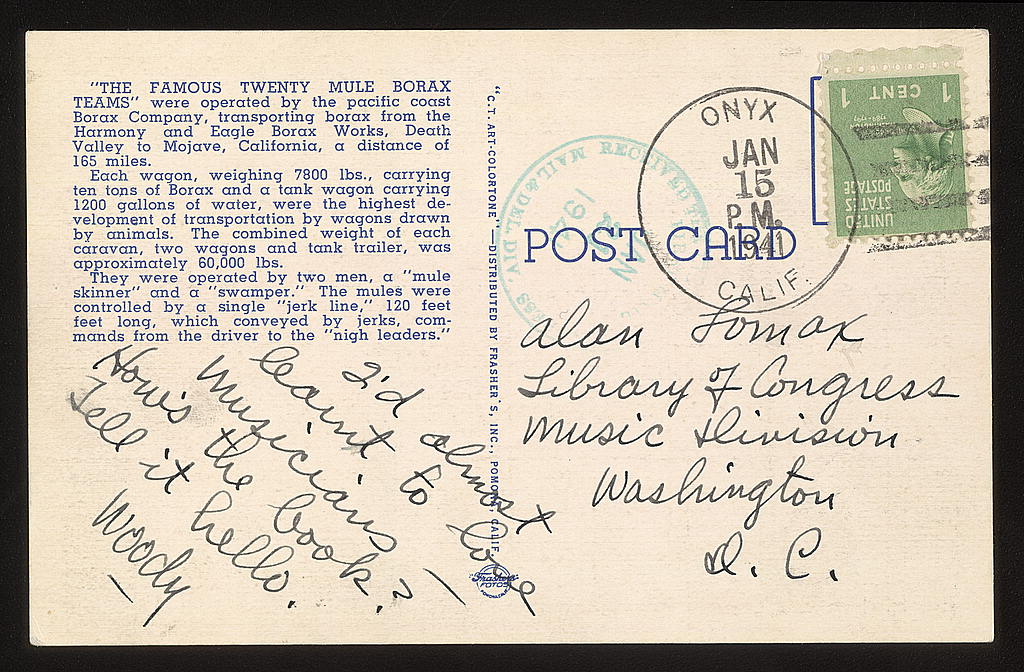 "THE FAMOUS TWENTY MULE BORAX
TEAMS" were operated by the pacific coast
Borax Company, transporting borax from the
Harmony and Eagle Borax Works, Death
Valley to Mojave, California, a distance of
165 miles.
Each wagon, weighing 7800 lbs., carrying
ten tons of Borax and a tank wagon carrying
1200 gallons of water, were the highest de-
velopment of transportation by wagons drawn
by animals. The combined weight of each
caravan, two wagons and tank trailer, was
approximately 60,000 lbs.
They were operated by two men, a "mule
skinner" and a "swamper." The mules were
controlled by a single "jerk line," 120 feet
feet long, which conveyed by jerks, com-
mands from the driver to the "nigh leaders."
I'd almost
learnt to love
musicians —
How's the book?
Tell it hello.
Woody —
"C.T. ART-COLORTONE" DISTRIBUTED BY FRASHER'S, INC., POMONA, CALIF.
"Frashers"
FOTOS
POMONA, CALIF.
POST CARD
MAIL & DEL. DIV. RECEIVED
JAN
194
ONYX
JAN
15
P.M.
1941
CALIF.
1 CENT 1
UNITED
STATES
POSTAGE
Alan Lomax
Library of Congress
Music Division
Washington
D. C.